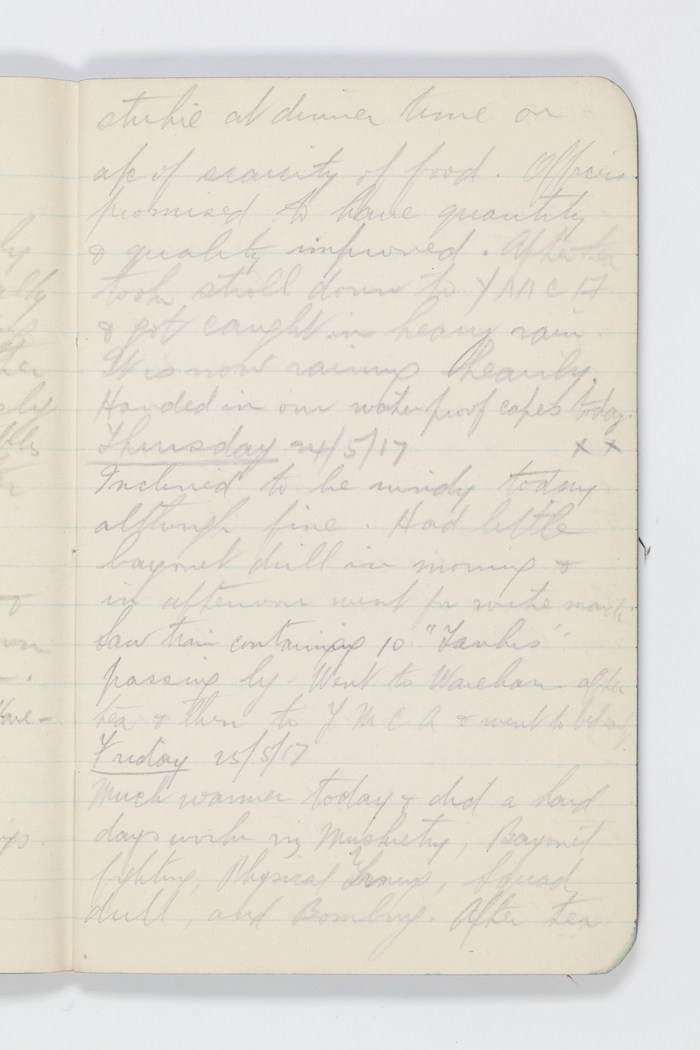 strike at dinner time on
a/c of scarcity of food. Officers
promised to have quantity
& quality improved. After tea
took stroll down to Y M C A
& got caught in heavy rain
It is now raining heavily.
Handed in our waterproof capes today.
Thursday 24/5/17 x x
Inclined to be windy today
although fine. Had little
bayonet drill in morning &
in afternoon went for route march.
Saw train containing 10 "Tanks"
passing by. Went to Wareham after
tea & then to Y M C A & went to bed early
Friday 25/5/17
Much warmer today & did a hard
days work viz Musketry, Bayonet
fighting, Physical, Squad
drill, and Bombing. After tea